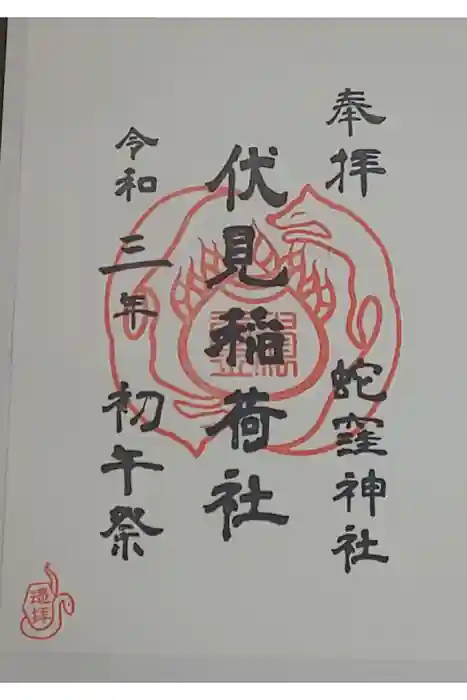 奉拝
蛇窪神社
伏見稲荷社
令和三年
初午祭
遥拝